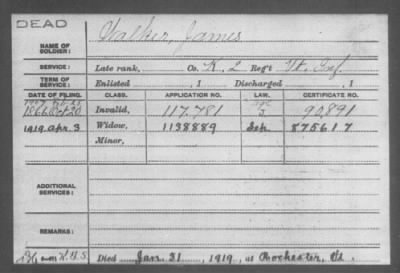 DEAD
NAME OF SOLDIER: Walker, James
SERVICE: Late rank, Co. K, 2 Reg't Vt. Inf.
TERM OF SERVICE: Enlisted , 1 Discharged , 1
DATE OF FILING. CLASS. APPLICATION NO. LAW. CERTIFICATE NO.
1866 Oct 20 Invalid, 117,781 90,891
1919 Apr. 3 Widow, 1138889 Sep. 875617
Minor,
ADDITIONAL SERVICES:
REMARKS:
Died Jan. 31 , 1919, at Rochester, Vt.